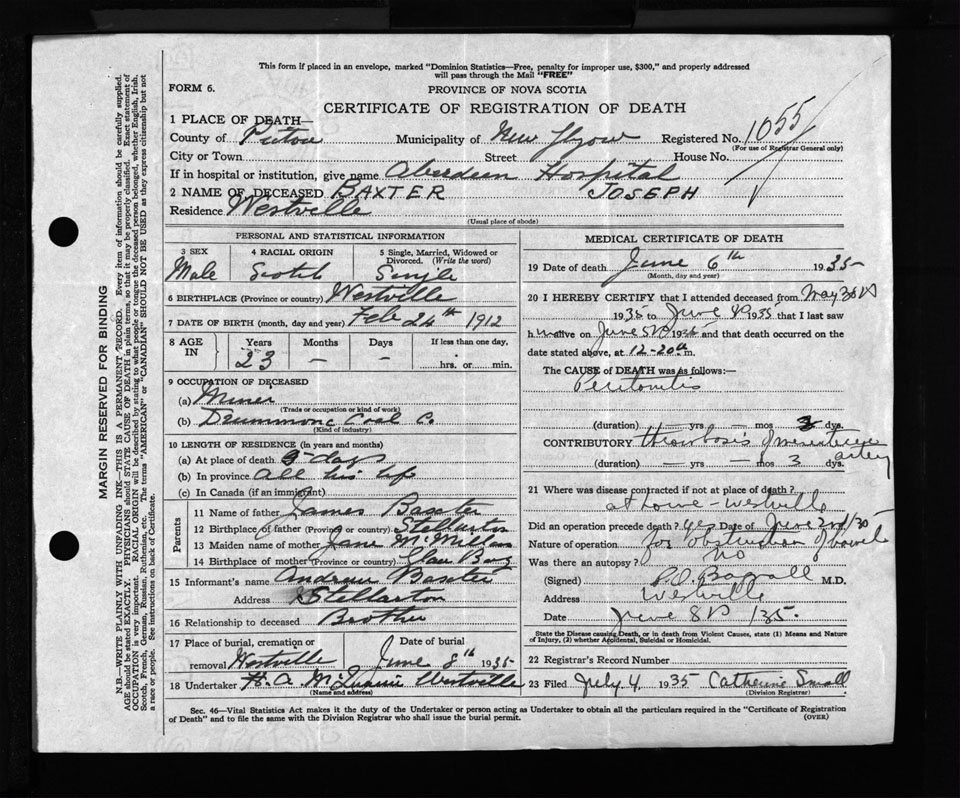 This form if placed in an envelope, marked "Dominion Statistics—Free, penalty for improper use, $300," and properly addressed
will pass through the Mail "FREE"
FORM 6.
PROVINCE OF NOVA SCOTIA
CERTIFICATE OF REGISTRATION OF DEATH
1 PLACE OF DEATH—
County of Pictou Municipality of New Glasgow Registered No. 1055
(For use of Registrar General only)
City or Town Street House No.
If in hospital or institution, give name Aberdeen Hospital
2 NAME OF DECEASED BAXTER JOSEPH
Residence Westville
(Usual place of abode)
PERSONAL AND STATISTICAL INFORMATION
3 SEX 4 RACIAL ORIGIN 5 Single, Married, Widowed or Divorced. (Write the word)
Male Scotch Single
6 BIRTHPLACE (Province or country) Westville
7 DATE OF BIRTH (month, day and year) Feb 24th 1912
8 AGE IN Years Months Days If less than one day,
23 — — ........hrs. or........min.
9 OCCUPATION OF DECEASED
(a) Miner
(Trade or occupation or kind of work)
(b) Drummond Coal Co.
(Kind of industry)
10 LENGTH OF RESIDENCE (in years and months)
(a) At place of death 5 days
(b) In province All his life
(c) In Canada (if an immigrant)
Parents
11 Name of father James Baxter
12 Birthplace of father (Province or country) Stellarton
13 Maiden name of mother Jane McMillan
14 Birthplace of mother (Province or country)
15 Informant's name Andrew Baxter
Address Stellarton
16 Relationship to deceased Brother
17 Place of burial, cremation or removal Westville Date of burial June 8th 1935
18 Undertaker H. A. Westville
(Name and address)
MEDICAL CERTIFICATE OF DEATH
19 Date of death June 6th 1935
(Month, day and year)
20 I HEREBY CERTIFY that I attended deceased from May 31
1935 to June 1935 that I last saw
h alive on June 5 1935 and that death occurred on
date stated above, at 12-20 m.
The CAUSE of DEATH was as follows:—
Peritonitis
(duration) — yrs — mos dys.
CONTRIBUTORY thrombosis of mesenteric artery
(duration) — yrs — mos 3 dys.
21 Where was disease contracted if not at place of death?
at home - Westville
Did an operation precede death? yes Date of June 2nd/35
Nature of operation for obstruction of bowels
Was there an autopsy? No
(Signed) M.D.
Address Westville
Date June 8 /35.
State the Disease causing Death, or in death from Violent Causes, state (1) Means and Nature
of Injury, (2) whether Accidental, Suicidal or Homicidal.
22 Registrar's Record Number
23 Filed July 4 1935 Catherine Small
(Division Registrar)
Sec. 46—Vital Statistics Act makes it the duty of the Undertaker or person acting as Undertaker to obtain all the particulars required in the "Certificate of Registration
of Death" and to file the same with the Division Registrar who shall issue the burial permit.
(OVER)
MARGIN RESERVED FOR BINDING
N.B.—WRITE PLAINLY WITH UNFADING INK—THIS IS A PERMANENT RECORD. Every item of information should be carefully supplied.
AGE should be stated EXACTLY. PHYSICIANS should STATE CAUSE OF DEATH in plain terms, so that it may be properly classified. Exact statement of
OCCUPATION is very important. RACIAL ORIGIN will be described by stating to what people or tongue the deceased person belonged, whether English, Irish,
Scotch, French, German, Russian, Ruthenian, etc. The terms "AMERICAN" or "CANADIAN" SHOULD NOT BE USED as they express citizenship but not
a race or people. See instructions on back of Certificate.